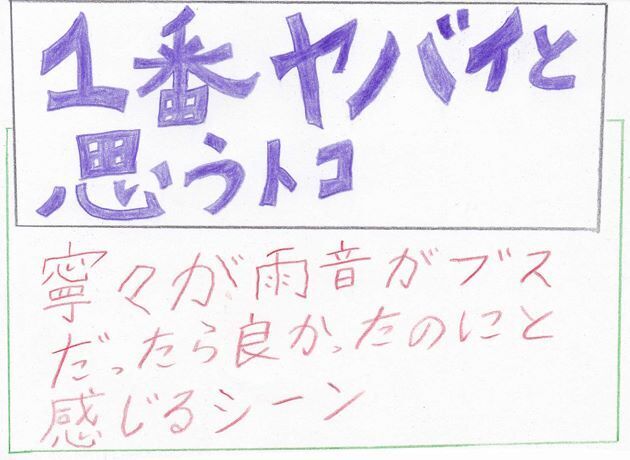 1番ヤバイと
思うトコ
寧々が雨音がブス
だったら良かったのにと
感じるシーン